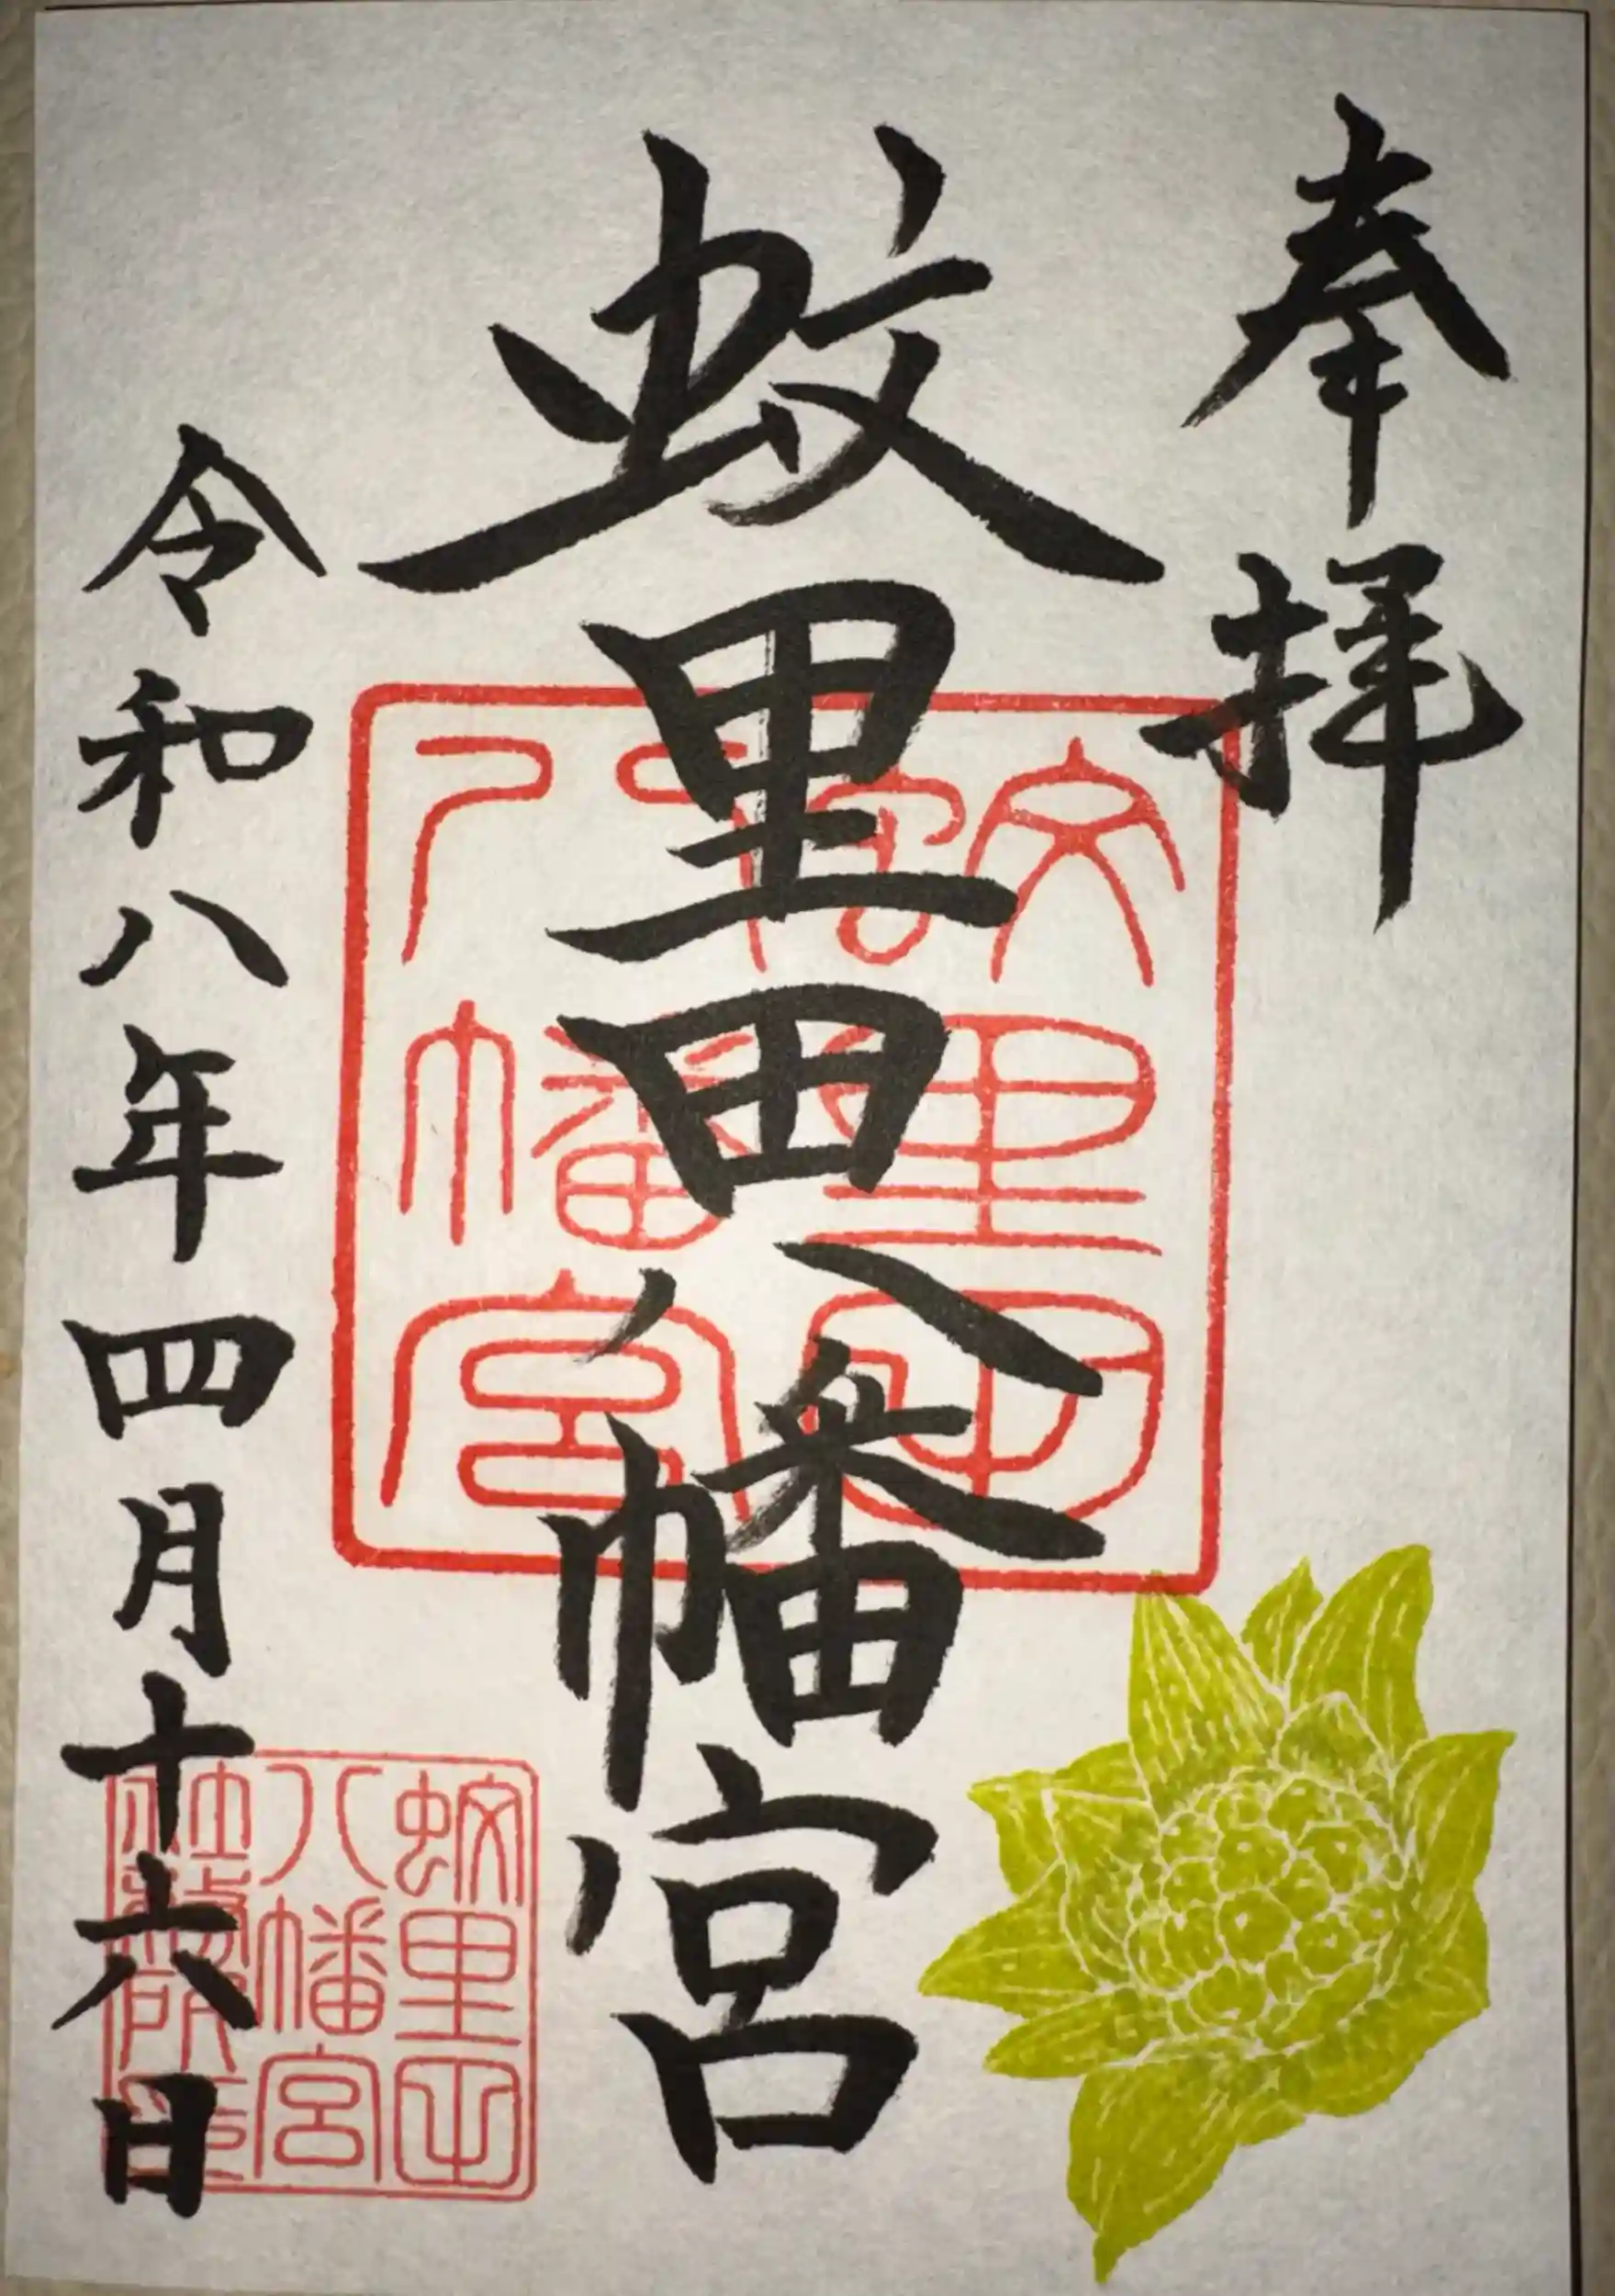 奉拝
蚊里田八幡宮
蚊里田
八幡宮
令和八年四月十六日
蚊里田
八幡宮